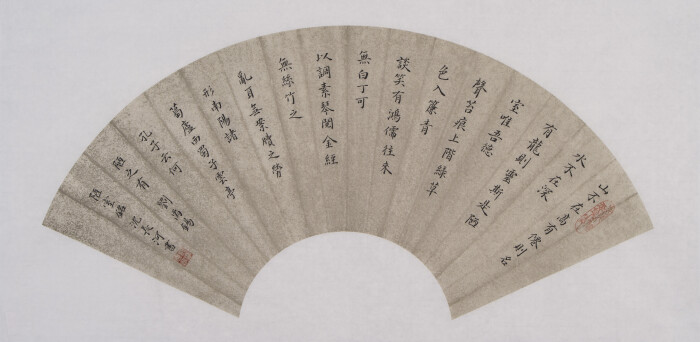 山不在高有僊則名
水不在深
有龍則靈斯是陋
室唯吾德
馨苔痕上階綠草
色入簾青
談笑有鴻儒往來
無白丁可
以調素琴閱金經
無絲竹之
亂耳無案牘之勞
形南陽諸
葛廬西蜀子雲亭
孔子云何
陋之有 劉禹錫
陋室銘 沈長河書